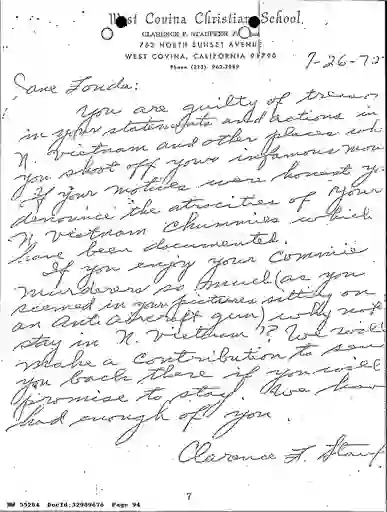 West Covina Christian School.
CLARENCE F. STAUFFER
763 NORTH SUNSET AVENUE
WEST COVINA, CALIFORNIA 91790
Phone (213)
7-26-72
Jane Fonda:
You are guilty of treason
in your statements and actions in
N. Vietnam and other places when
you shoot off your infamous mou
If your motives were honest yo
denounce the atrocities of your
N Vietnam chummies which
have been documented.
If you enjoy your Commie
murderers so much (as you
seemed in your pictures sitting on
an anti aircraft gun) why not
stay in N. Vietnam? We will
make a contribution to sen
you back there if you will
promise to stay. We have
had enough of you.
Clarence F. Stauf
7
NW 55284 DocId:32989676 Page 94